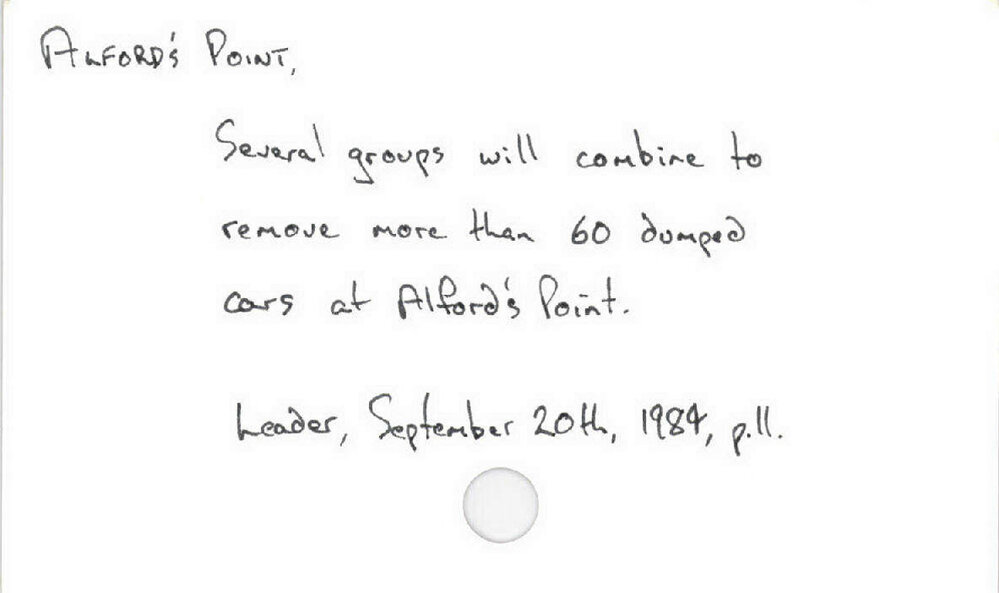 ALFORD'S POINT,
Several groups will combine to
remove more than 60 dumped
cars at Alford's Point.
Leader, September 20th, 1984, p.11.